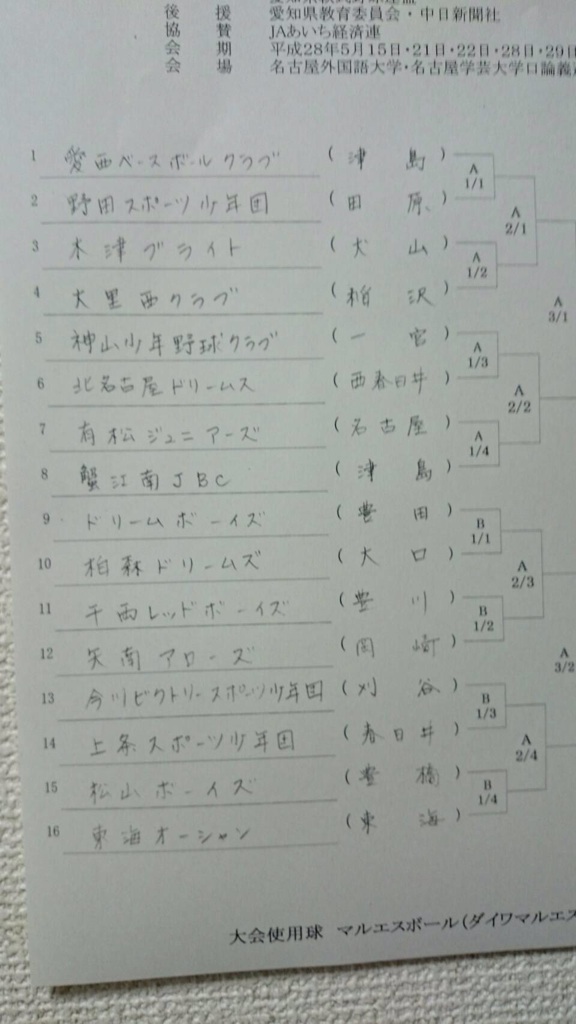 後援 愛知県教育委員会・中日新聞社
協賛 JAあいち経済連
会期 平成28年5月15日・21日・22日・28日・29日
会場 名古屋外国語大学・名古屋学芸大学口論義
1 愛西ベースボールクラブ (津島)
A 1/1
2 野田スポーツ少年団 (田原)
A 2/1
3 木津ブライト (犬山)
A 1/2
4 大里西クラブ (稲沢)
A 3/1
5 神山少年野球クラブ (一宮)
A 1/3
6 北名古屋ドリームス (西春日井)
A 2/2
7 有松ジュニアーズ (名古屋)
A 1/4
8 蟹江南JBC (津島)
9 ドリームボーイズ (豊田)
B 1/1
10 柏森ドリームズ (大口)
A 2/3
11 千両レッドボーイズ (豊川)
B 1/2
12 矢南アローズ (岡崎)
A 3/2
13 今川ビクトリースポーツ少年団 (刈谷)
B 1/3
14 上条スポーツ少年団 (春日井)
A 2/4
15 松山ボーイズ (豊橋)
B 1/4
16 東海オーシャン (東海)
大会使用球 マルエスボール(ダイワマルエス